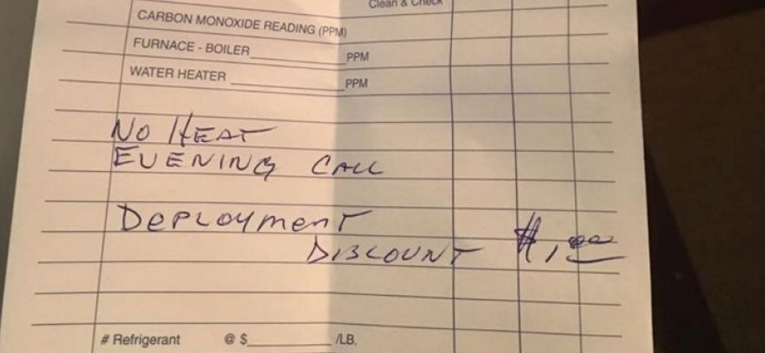 Clean & Check
CARBON MONOXIDE READING (PPM)
FURNACE - BOILER PPM
WATER HEATER PPM
NO HEAT
EVENING CALL
DEPLOYMENT
DISCOUNT $1.00
# Refrigerant @ $ /LB.